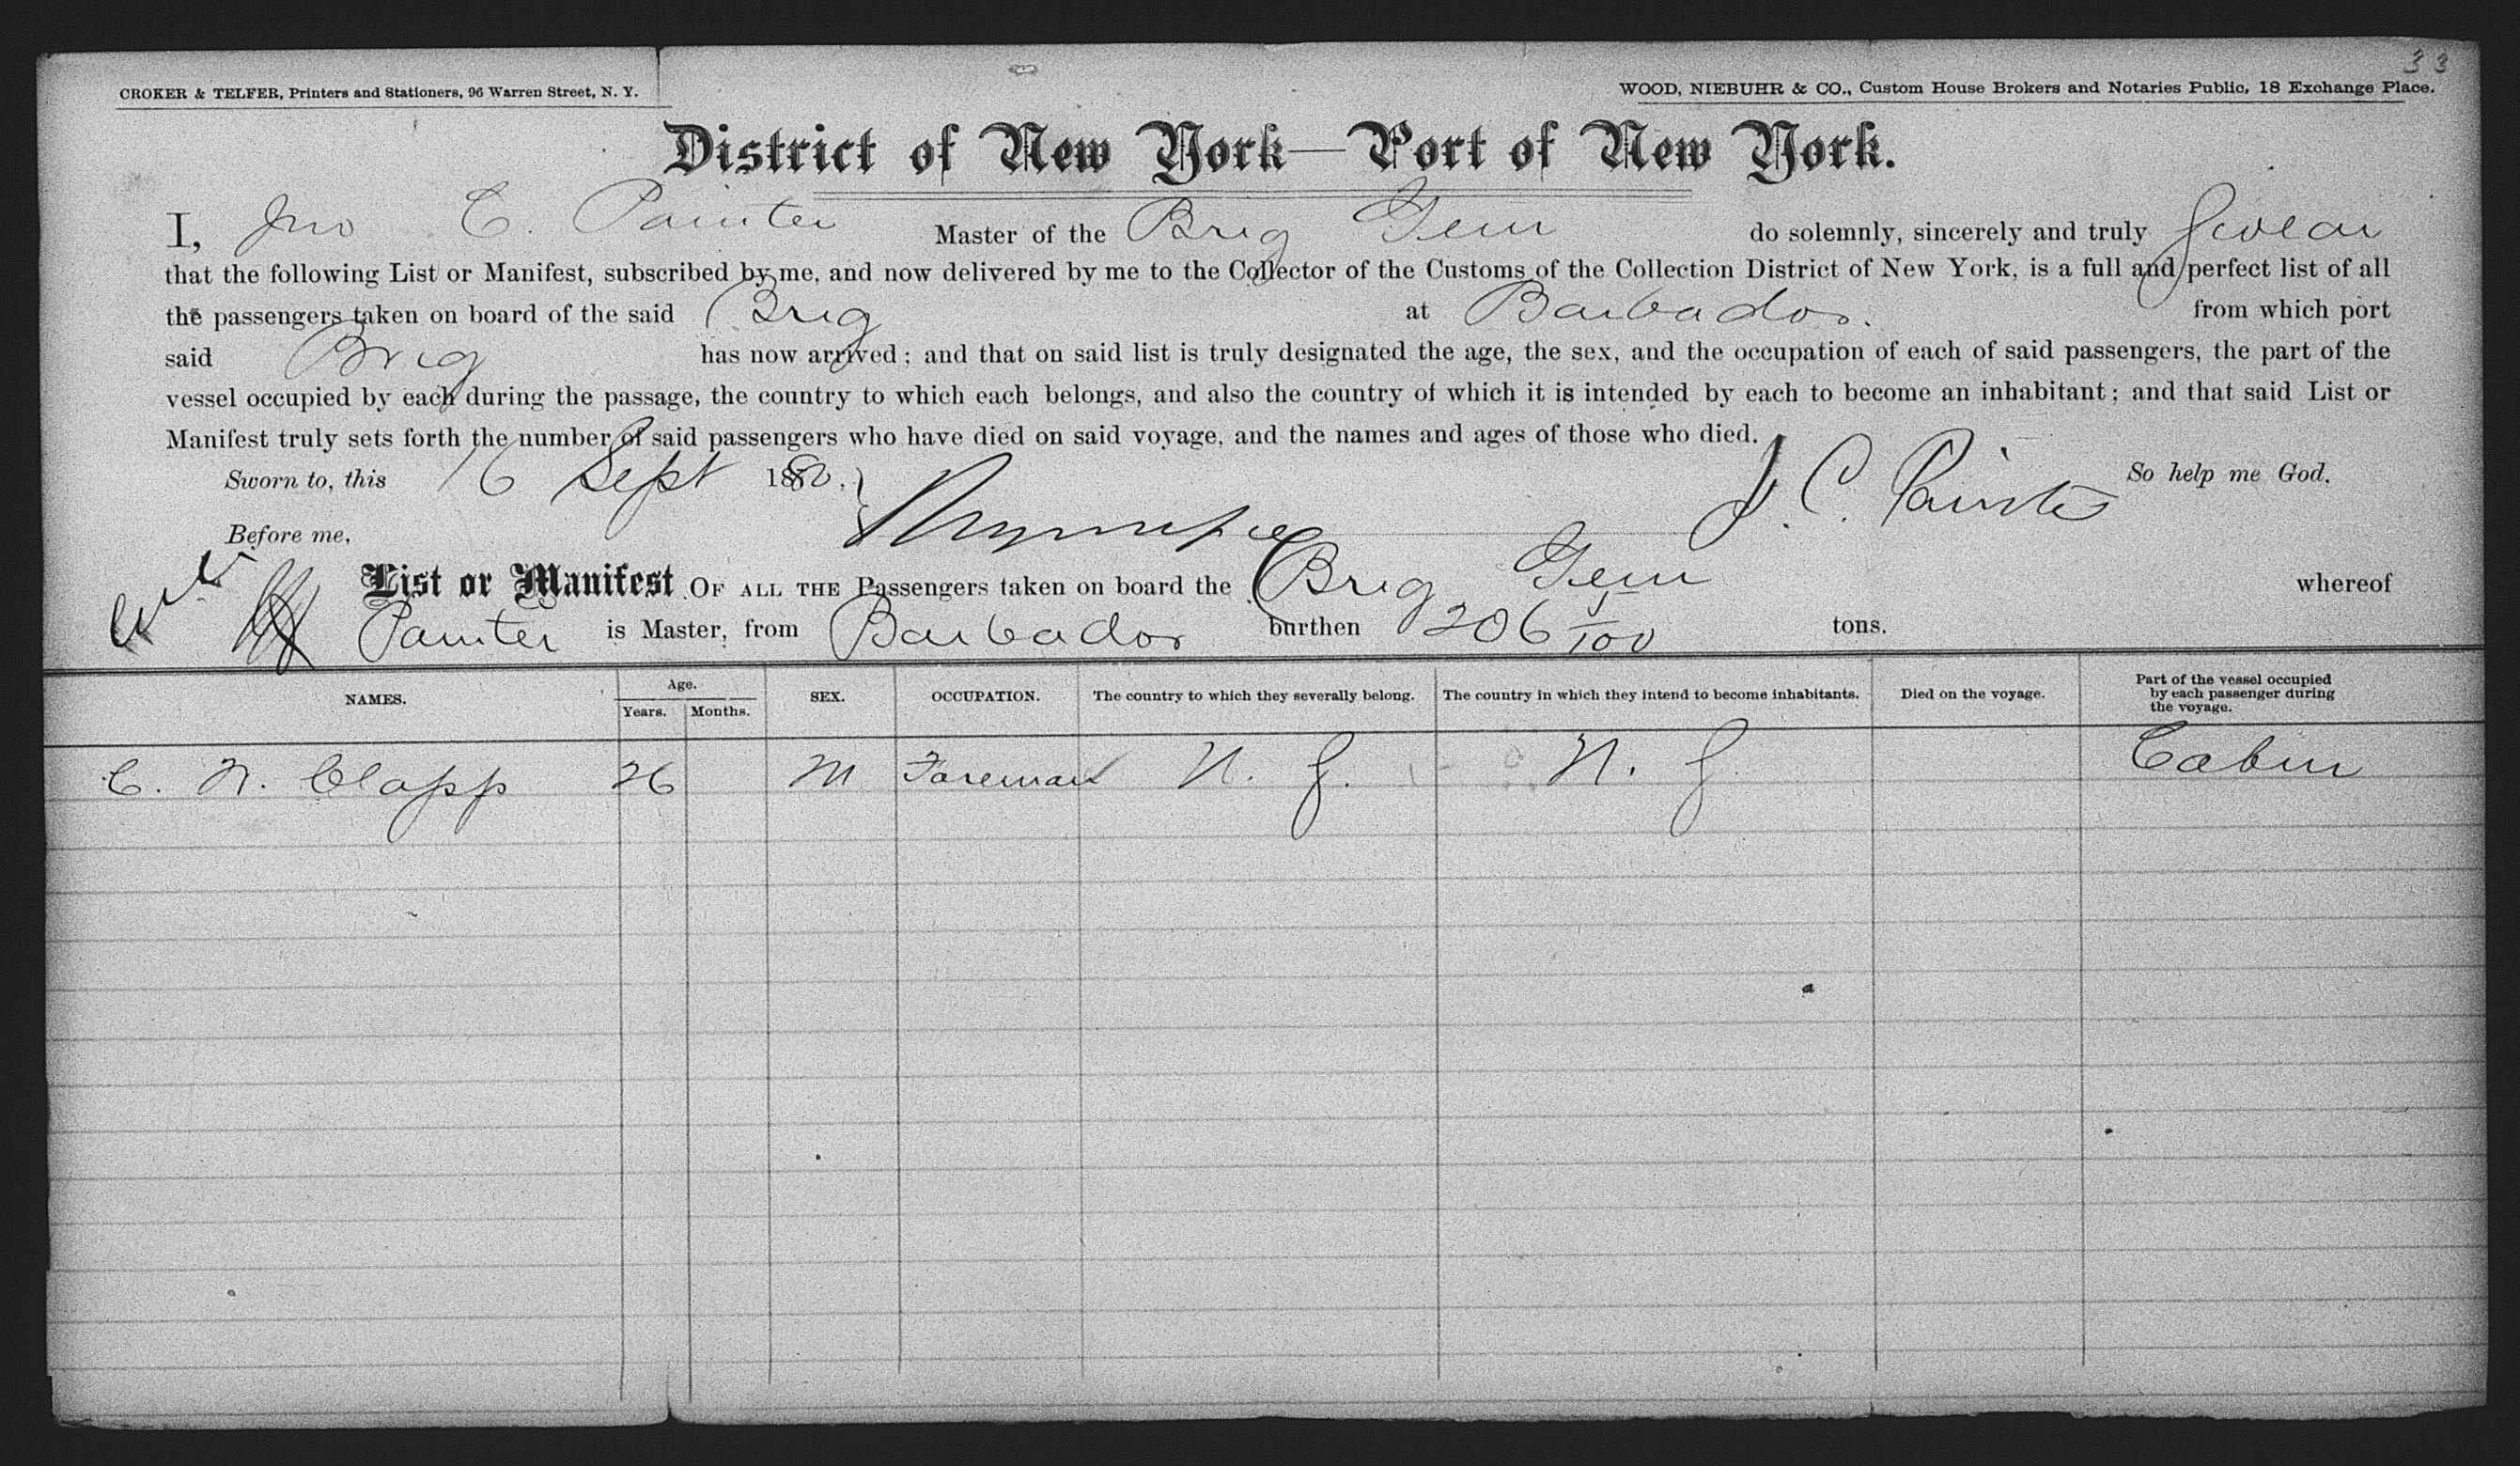 33
CROKER & TELFER, Printers and Stationers, 96 Warren Street, N. Y.
WOOD, NIEBUHR & CO., Custom House Brokers and Notaries Public, 18 Exchange Place.
District of New York—Port of New York.
I, Jno C. Painter Master of the Brig Gem do solemnly, sincerely and truly Swear
that the following List or Manifest, subscribed by me, and now delivered by me to the Collector of the Customs of the Collection District of New York, is a full and perfect list of all
the passengers taken on board of the said Brig at Barbados. from which port
said Brig has now arrived; and that on said list is truly designated the age, the sex, and the occupation of each of said passengers, the part of the
vessel occupied by each during the passage, the country to which each belongs, and also the country of which it is intended by each to become an inhabitant; and that said List or
Manifest truly sets forth the number of said passengers who have died on said voyage, and the names and ages of those who died.
Sworn to, this 16 Sept 1880. J. C. Painter So help me God.
Before me,
List or Manifest OF ALL THE Passengers taken on board the Brig Gem whereof
Painter is Master, from Barbados burthen 206 1/100 tons.
NAMES. Age. Years. Months. SEX. OCCUPATION. The country to which they severally belong. The country in which they intend to become inhabitants. Died on the voyage. Part of the vessel occupied by each passenger during the voyage.
C. N. Clapp 26 M Foreman N. Y. N. Y. Cabin